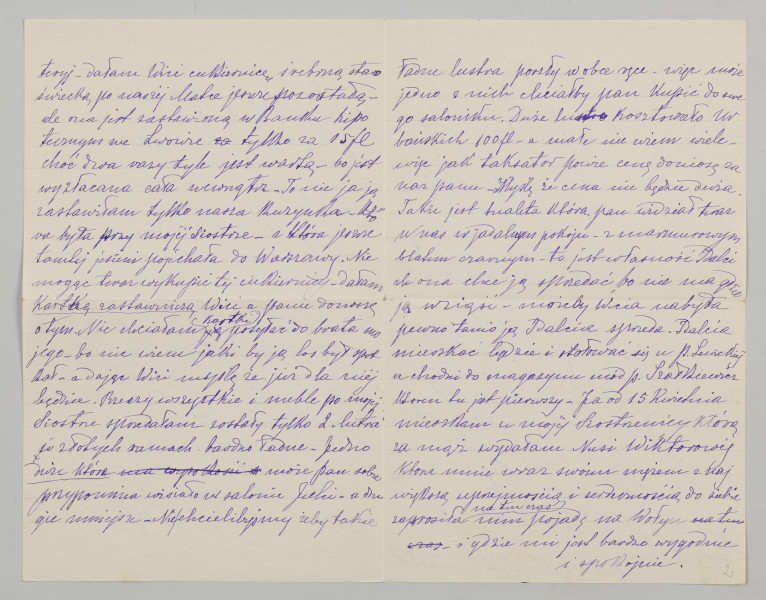 twój – dałam Wici cukiernicę, srebrną staro
świecką, po naszej Matce jeszcze pozostałą –
ale ona jest zastawioną w Banku hipo
tecznym we Lwowie za tylko za 15 fl
choć dwa razy tyle jest wartą – bo jest
wyzłacana cała wewnątrz – To nie ja ją
zastawiłam tylko nasza Kuzynka – któ
ra była przy mojej Siostrze – a która jeszcze
tamtej jesieni pojechała do Warszawy. Nie
mogąc teraz wykupić tej cukiernicy – dałam
Kartkę zastawniczą Wici a panu donoszę
o tym. Nie chciałam kartki posyłać do brata mo
jego – bo nie wiem jaki by ją los był spot
kał – a dając Wici myślę że już dla niej
będzie. Rzeczy wszystkie i meble po mojej
Siostrze sprzedałam zostały tylko 2 lustra
w złotych ramach – bardzo ładne – Jedno
duże które może pan sobie
przypomina wisiało w salonie – a dru
gie mniejsze – Nie chcielibyśmy żeby takie
ładne lustra poszły w obce ręce – więc może
jedno z nich chciałby pan kupić do swe
go saloniku. Duże lustro kosztowało Ur
bańskich 100 fl – a małe nie wiem wiele –
więc jak taksator powie cenę doniosę za
raz panu – Myślę że cena nie będzie duża.
Także jest toaleta którą pan widział teraz
u nas w jadalnym pokoju – z marmurowym
blatem czarnym – to jest własność Balci
ale ona chce ją sprzedać bo nie ma gdzie
ją wziąść – możeby Wicia nabyła
pewno tanio ją Balcia sprzeda. Balcia
mieszkać będzie i stołować się u p.
a chodzi do magazynu mód p.
który tu jest pierwszy – Ja od 15 Kwietnia
mieszkam u mojej Siostrzenicy którą
za mąż wydałam Nusi Wiktorowej
która mnie wraz swoim mężem z całą
wylkosą uprzejmością i serdecznością do siebie
zaprosiła na ten czas nim pojadę na Wołyń na ten
czas – i gdzie mi jest bardzo wygodnie
i spokojnie.